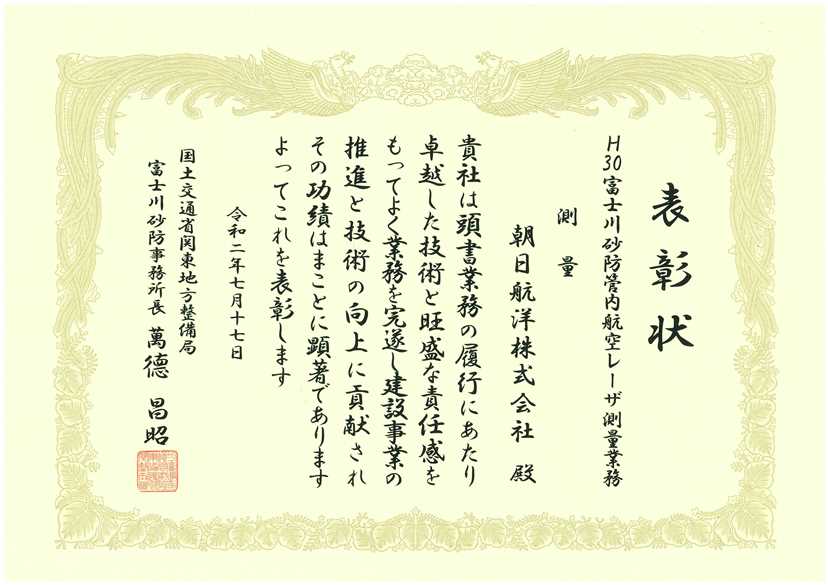 表彰状
H30富士川砂防管内航空レーザ測量業務
測量
朝日航洋株式会社 殿
貴社は頭書業務の履行にあたり
卓越した技術と旺盛な責任感を
もってよく業務を完遂し建設事業の
推進と技術の向上に貢献され
その功績はまことに顕著であります
よってこれを表彰します
令和二年七月十七日
国土交通省関東地方整備局
富士川砂防事務所長 萬德 昌昭